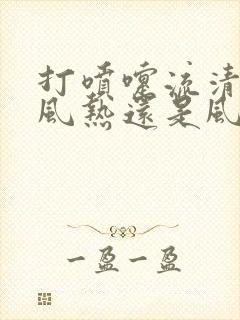 打噴嚏流清
風熱還是風
一盈一盈